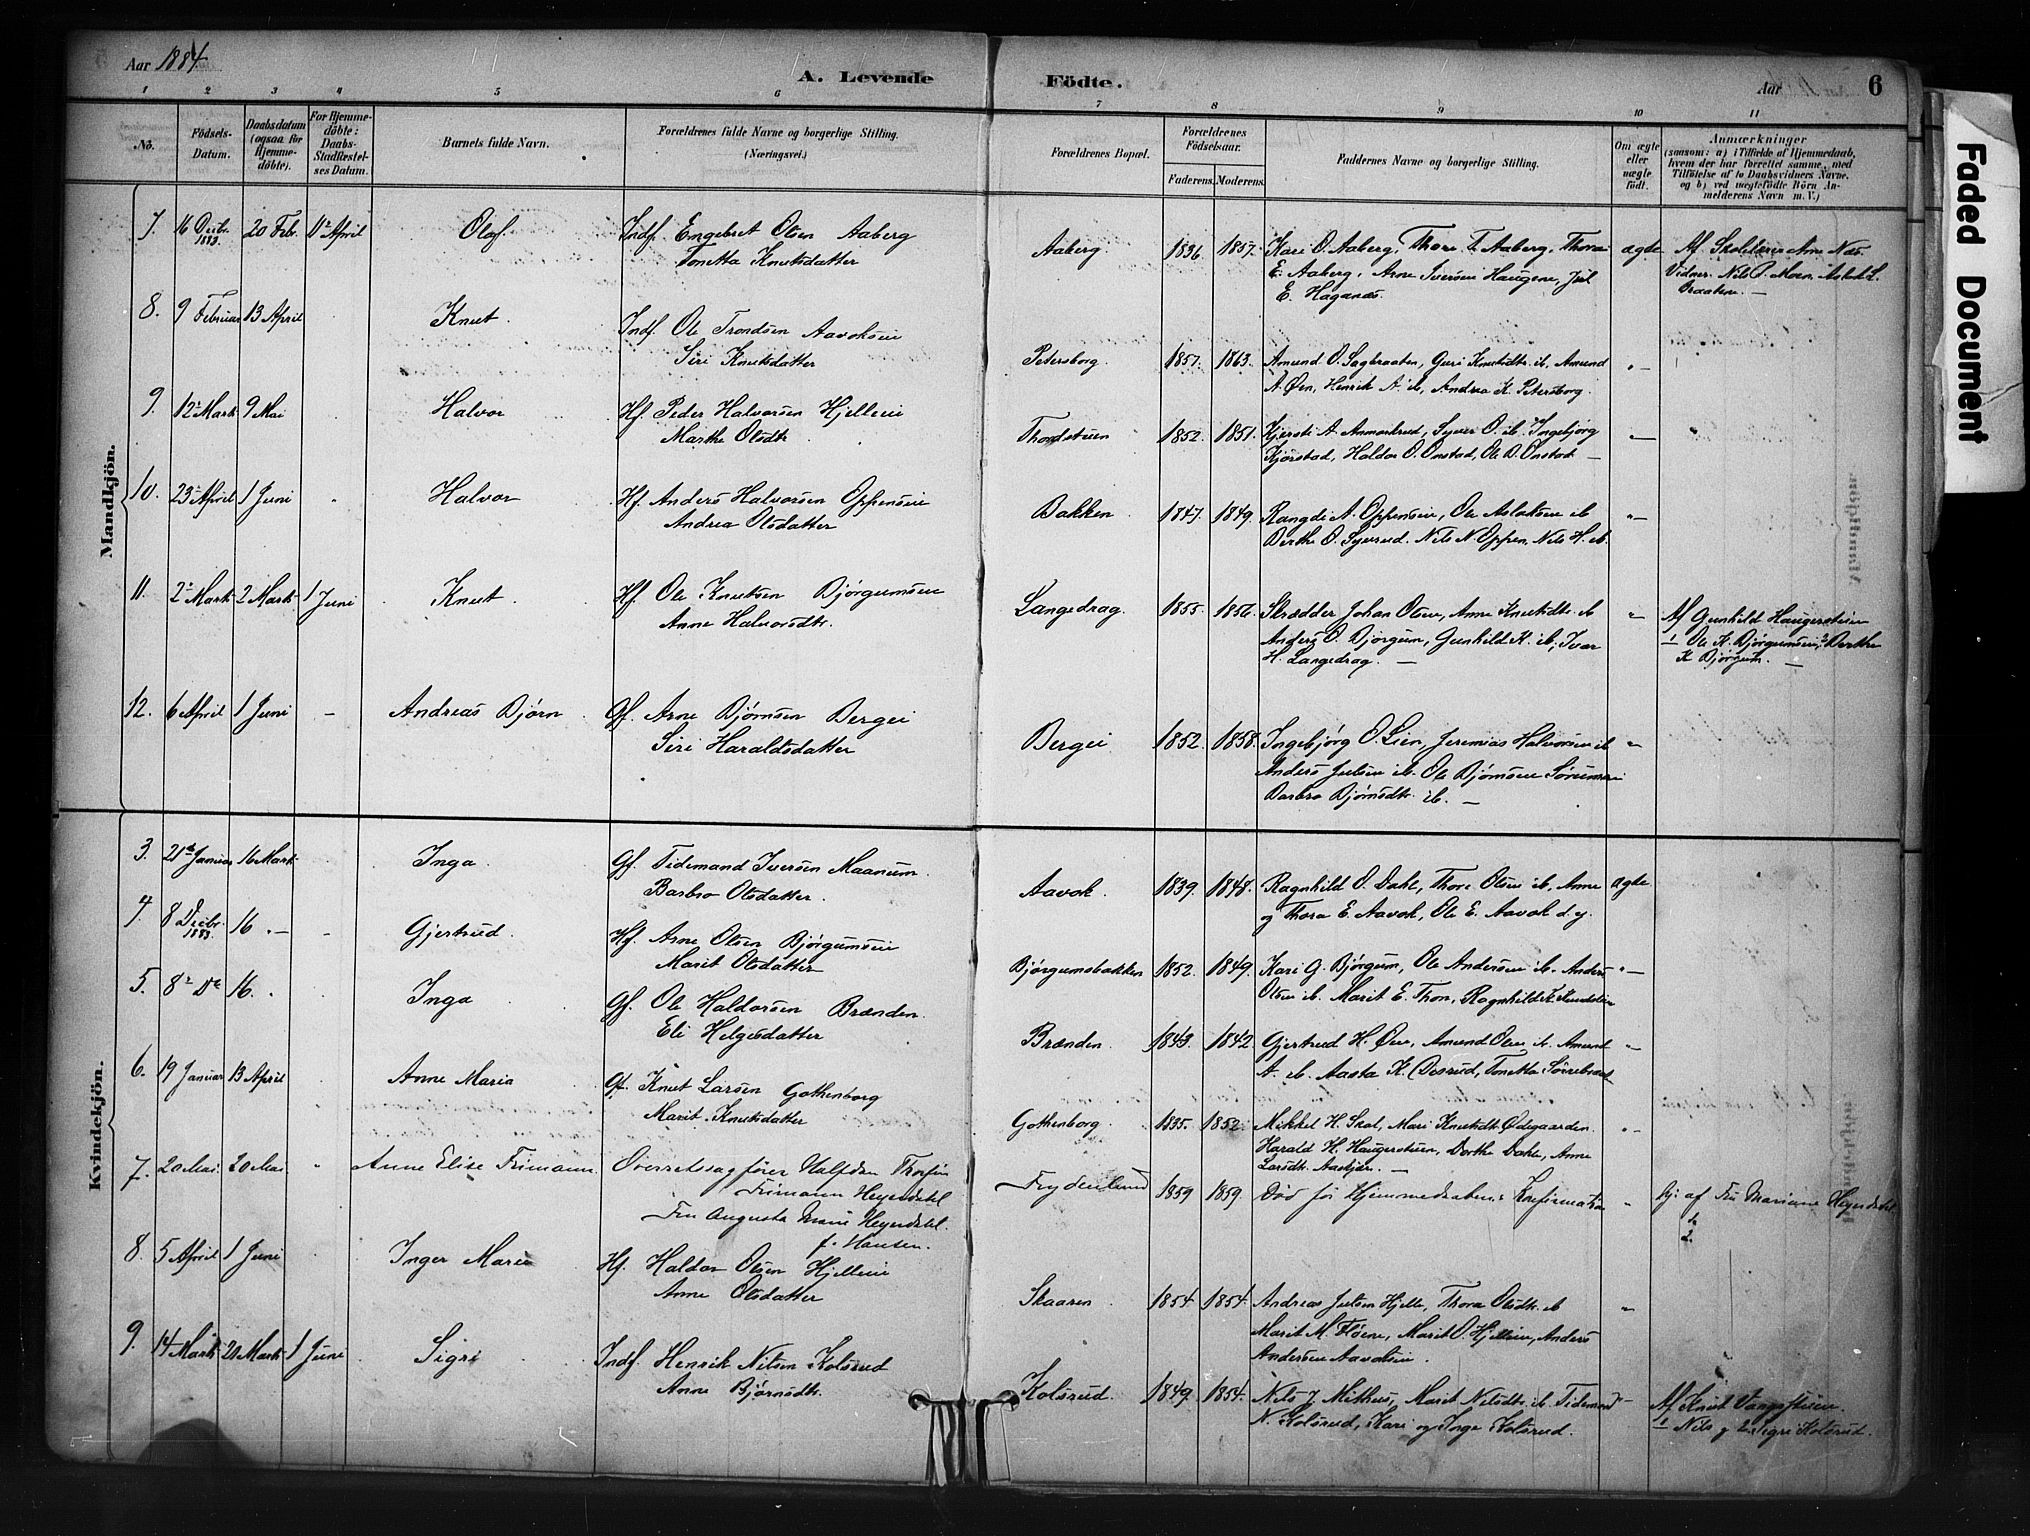 Aar 1884.
A. Levende Födte.
Aar
6
1 2 3 4 5 6 7 8 9 10 11
No.
Födsels-Datum.
Daabsdatum (ogsaa for Hjemmedöbte).
For Hjemmedöbte: Daabs-Stadfæstelses Datum.
Barnets fulde Navn.
Forældrenes fulde Navne og borgerlige Stilling. (Næringsvei.)
Forældrenes Bopæl.
Forældrenes Födselsaar.
Faderens. Moderens.
Faddernes Navne og borgerlige Stilling.
Om ægte eller uægte födt.
Anmærkninger
(saasom: a) i Tilfælde af Hjemmedaab, hvem der har forrettet samme, med Tilföielse af to Daabsvidners Navne. og b) ved uægtefödte Börn Anmelderens Navn m. V.)
Faded Document
Mandkjön.
7. 16 Decbr. 1883. 20 Febr. April Olaf. Indf. Engebret Olsen Aaberg
Tonetta Knutsdatter
Aaberg 1836. 1857. Kari O. Aaberg, Thore T. Aaberg, Thora ægte Af Skolelærer Arne Næs.
E. Aaberg, Arne Iversen Haugene, Jul Vidner. Nils P. Moen, Aslak L.
E. Haganæs. Braaten. —
8. 9 Februar 13 April Knut. Indf. Ole Trondsen Aavoksei
Siri Knutsdatter
Petersborg 1857. 1863. Amund O. Sagbraaten, Guri Knutsdtr. ib, Amund " —
A. Øen, Henrik A. ib, Andrea K. Petersborg.
9. 12 Marts 9 Mai Halvor Hf. Peder Halvorsen Hjelleiei
Marthe Olsdtr.
Thordstuen 1852. 1851. Kjersti A. Anmarkrud, Syver O. ib. Ingebjørg
Kjørstad, Haldor O. Onstad, Ole O. Onstad —
10. 23 April 1 Juni Halvor Hf. Anders Halvorsen Oppensei
Andrea Olsdatter
Bakken 1847. 1849. Rangdi A. Oppensei, Ole Aslaksen ib " —
Berthe O. Syverud. Nils N Oppen, Nils H. ib.
11. 2 Marts 2 Marts 1 Juni Knut. Hf. Ole Knutsen Bjørgumsei
Anne Halvorsdtr.
Langedrag. 1855. 1856. Skrædder Johan Olsen, Anne Knutsdtr. ib " Af Gunhild Haugersteien
Anders O. Bjørgum, Gunhild K. ib, Ivar 1 Ole K. Bjørgumsei, 2 Berthe
H. Langedrag. — K Bjørgum. —
12. 6 April 1 Juni — Andreas Bjørn Gf. Arne Bjørnsen Bergei
Siri Haraldsdatter
Bergei 1852. 1858. Ingebjørg O. Lien, Jeremias Halvorsen ib "
Anders Julsen ib. Ole Bjørnsen Sørumsei
Barbro Bjørnsdtr. ib. —
Kvindekjön.
3. 21 Januar 16 Marts Inga. Gf. Tidemand Iversen Maanum.
Barbro Olsdatter.
Aavok. 1839. 1848. Ragnhild O. Dahl, Thore Olsen ib, Anne Ægte.
og Thora E. Aavok, Ole E. Aavok d.y.
4. 8 Decbr. 1883. 16. — Gjertrud. Hf. Arne Olsen Bjørgumsei
Marit Olsdatter
Bjørgumsbakken 1852. 1849. Kari G. Bjørgum, Ole Andersen ib. Anders " —
Olsen ib. Marit E. Thon, Ragnhild K.
5. 8 De 16. Inga Gf. Ole Haldorsen Brænden.
Eli Helgesdatter
Brænden. 1843. 1842 Gjertrud H. Øen, Amund Olsen ib. Amund " —
A. ib. Aasta K. Tonetta Sørrebraat
6. 19 Januar 13 April Anne Maria Gf. Knut Larsen Gothenborg
Marit Knutsdatter
Gothenborg. 1835. 1852. Mikkel H. Skol, Mari Knutsdtr. Ødegaarden. " —
Harald H. Haugersteien, Dorthe Dahl, Anne
Larsdtr. —
7. 20 Mai 20 Mai " Anne Elise Frimann. Overretssagfører Halfdan Thorfin
Frimann Heyerdahl.
Fru Augusta Marie Heyerdahl.
f. Hansen.
Frydenlund 1859 1859. Død før Hjemmedaabens Konfirmation " Hj. af Fru Mariane Heyerdahl
1.
2.
8. 5 April 1 Juni Inger Marie Hf. Haldor Olsen Hjelleiei
Anne Olsdatter
Skaaren. 1854. 1854. Andreas Julsen Hjelle, Thora Olsdtr. ib "
Marit M. Fløene, Marit O. Hjelleien, Anders
Andersen Aavoksei.
9. 14 Marts 21 Marts 1 Juni Sigri Indf. Henrik Nilsen Kolsrud
Anne Bjørnsdtr.
Kolsrud. 1849. 1854. Nils J. Mithus, Marit Nilsdtr. ib. Tidemand " — Af Knut Vangssteien.
N. Kolsrud, Kari og Inge Kolsrud. 1 Nils og 2 Sigri Kolsrud.